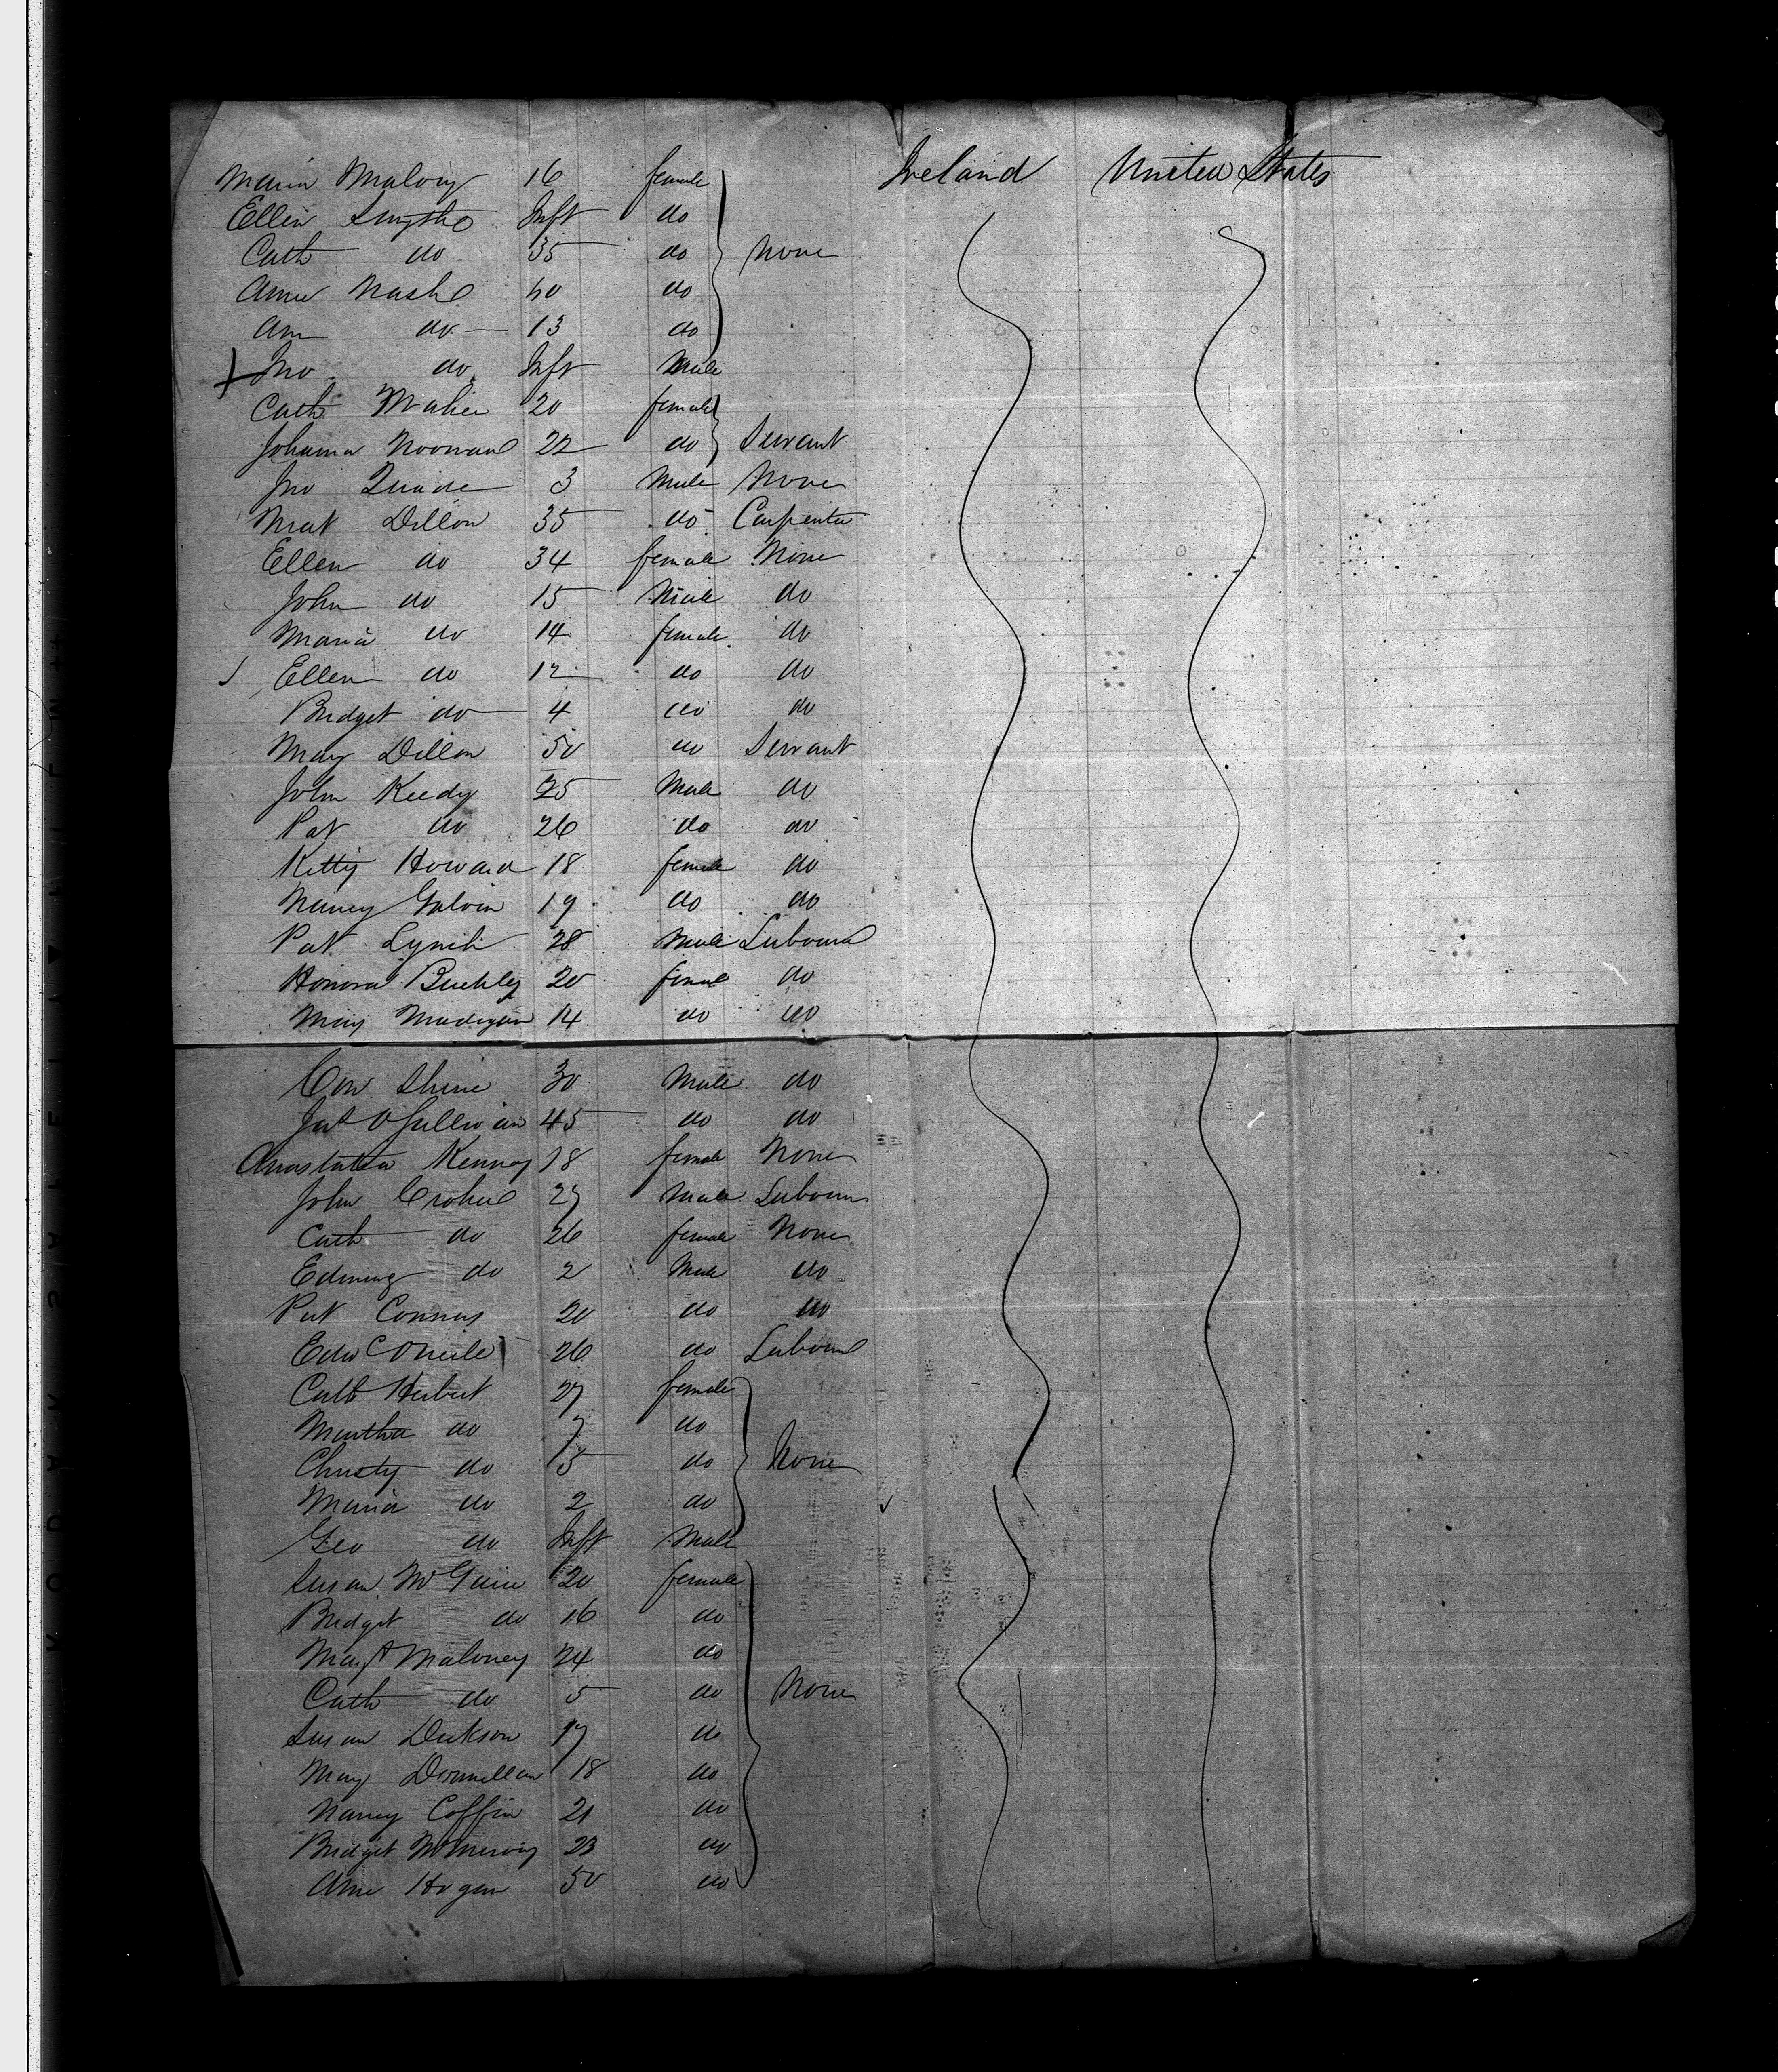 Maria Malony 16 female Ireland United States
Ellen Smythe Inft do
Cath do 35 do None
Anne Nash 40 do
Ann do 13 do
Jno do Inft Male
Cath Maher 20 female
Johanna Noonan 22 do Servant
Jno Quade 3 Male None
Mat Dillon 35 do Carpenter
Ellen do 34 female None
John do 15 Male do
Maria do 14 female do
Ellen do 12 do do
Bridget do 4 do do
Mary Dillon 50 do Servant
John Keedy 25 Male do
Pat do 26 do do
Kitty Howard 18 female do
Nancy Galvin 19 do do
Pat Lynch 28 Male Labourer
Honora Buckley 20 female do
Mary Madigan 14 do do
Con Shine 30 Male do
O Sullivan 45 do do
Anastatia Kenney 18 female None
John Crohen 27 Male Labourer
Cath do 26 female None
Edmund do 2 Male do
Pat Connors 20 do do
Edw O'Neile 26 do Labourer
Cath Herbert 27 female
Martha do 7 do
Christy do 5 do None
Maria do 2 do
Geo do Inft Male
Susan McGuire 20 female
Bridget do 16 do
Margt Maloney 24 do
Cath do 5 do None
Susan Dickson 17 do
Mary Donnellan 18 do
Nancy Coffin 21 do
Bridget 23 do
Anne Hogan 50 do